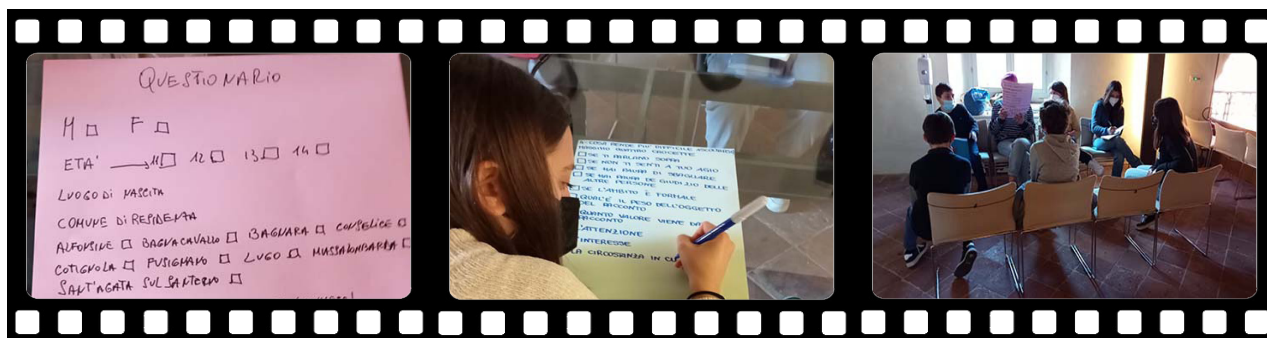 QUESTIONARIO
M □ F □
ETA' 11 □ 12 □ 13 □ 14 □
LUOGO DI NASCITA
COMUNE DI RESIDENZA
ALFONSINE □ BAGNACAVALLO □ BAGNARA □ CONSELICE □
COTIGNOLA □ FUSIGNANO □ LUGO □ MASSALOMBARDA □
SANT'AGATA SUL SANTERNO □
COSA RENDE PIU' DIFFICILE ASCOLTARE
□ SE TI PARLANO SOPRA
□ SE NON TI SENTI A TUO AGIO
□ SE HAI PAURA DI SBAGLIARE
□ SE HAI PAURA DE GIUDIZIO DELLE
ALTRE PERSONE
□ SE L'AMBITO È FORMALE
□ QUAL'È IL PESO DELL'OGGETTO
DEL RACCONTO
QUANTO VALORE VIENE
RACCONTO
ATTENZIONE
INTERESSE
LA CIRCOSTANZA IN